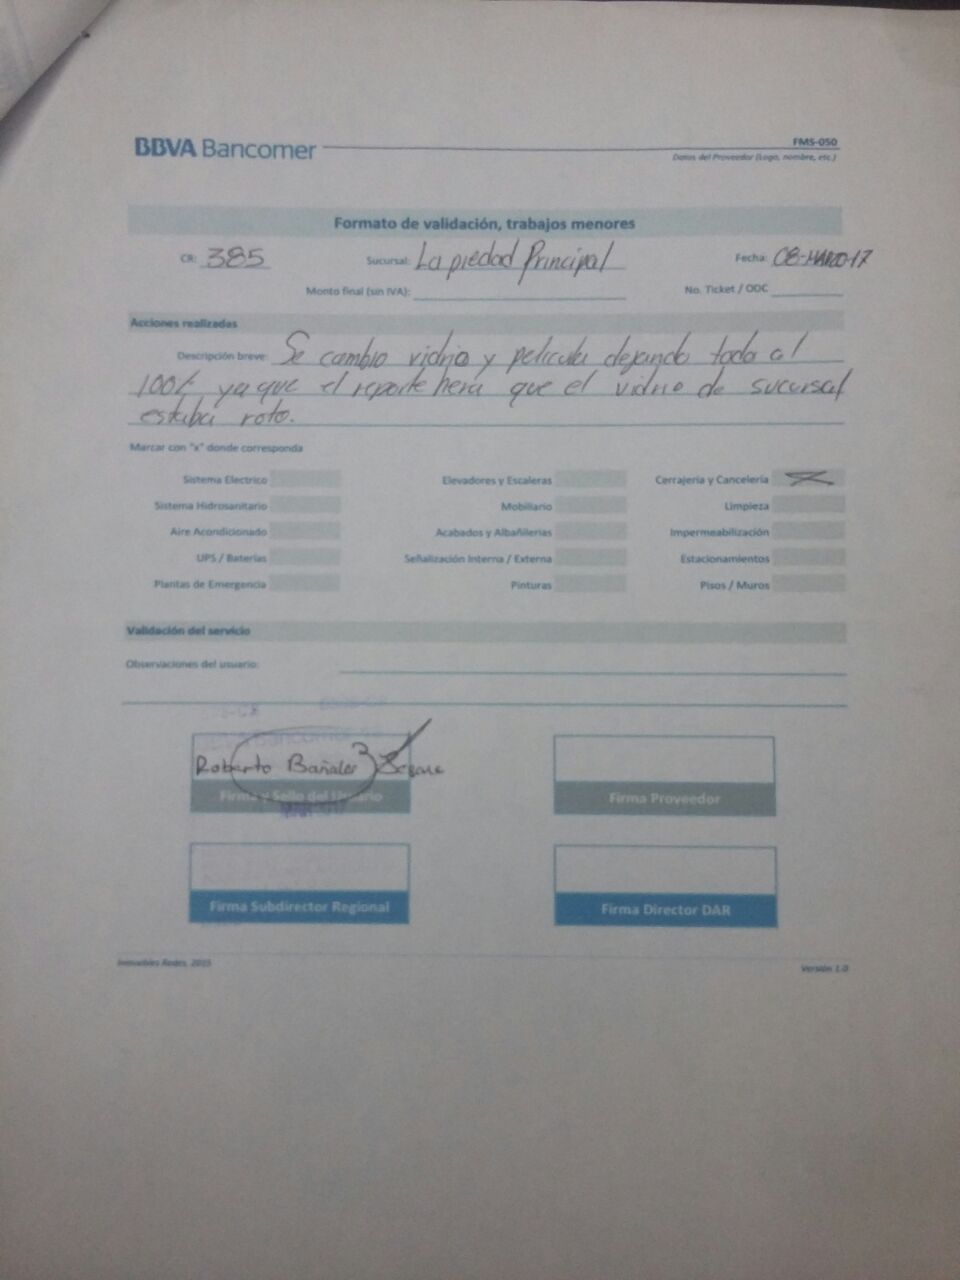 BBVA Bancomer
FMS-050
Datos del Proveedor (Logo, nombre, etc.)
Formato de validación, trabajos menores
CR: 385 Sucursal: La piedad Principal Fecha: 08-MARZO-17
Monto final (sin IVA): No. Ticket / ODC
Acciones realizadas
Descripción breve: Se cambio vidrio y pelicula dejando todo al
100% ya que el reporte hera que el vidrio de sucursal
estaba roto.
Marcar con "x" donde corresponda
Sistema Electrico Elevadores y Escaleras Cerrajería y Cancelería X
Sistema Hidrosanitario Mobiliario Limpieza
Aire Acondicionado Acabados y Albañilerias Impermeabilización
UPS / Baterías Señalización Interna / Externa Estacionamientos
Plantas de Emergencia Pinturas Pisos / Muros
Validación del servicio
Observaciones del usuario:
Roberto Bañales
Firma y Sello del Usuario Firma Proveedor
Firma Subdirector Regional Firma Director DAR
Inmuebles Redes, 2015 Versión 1.0